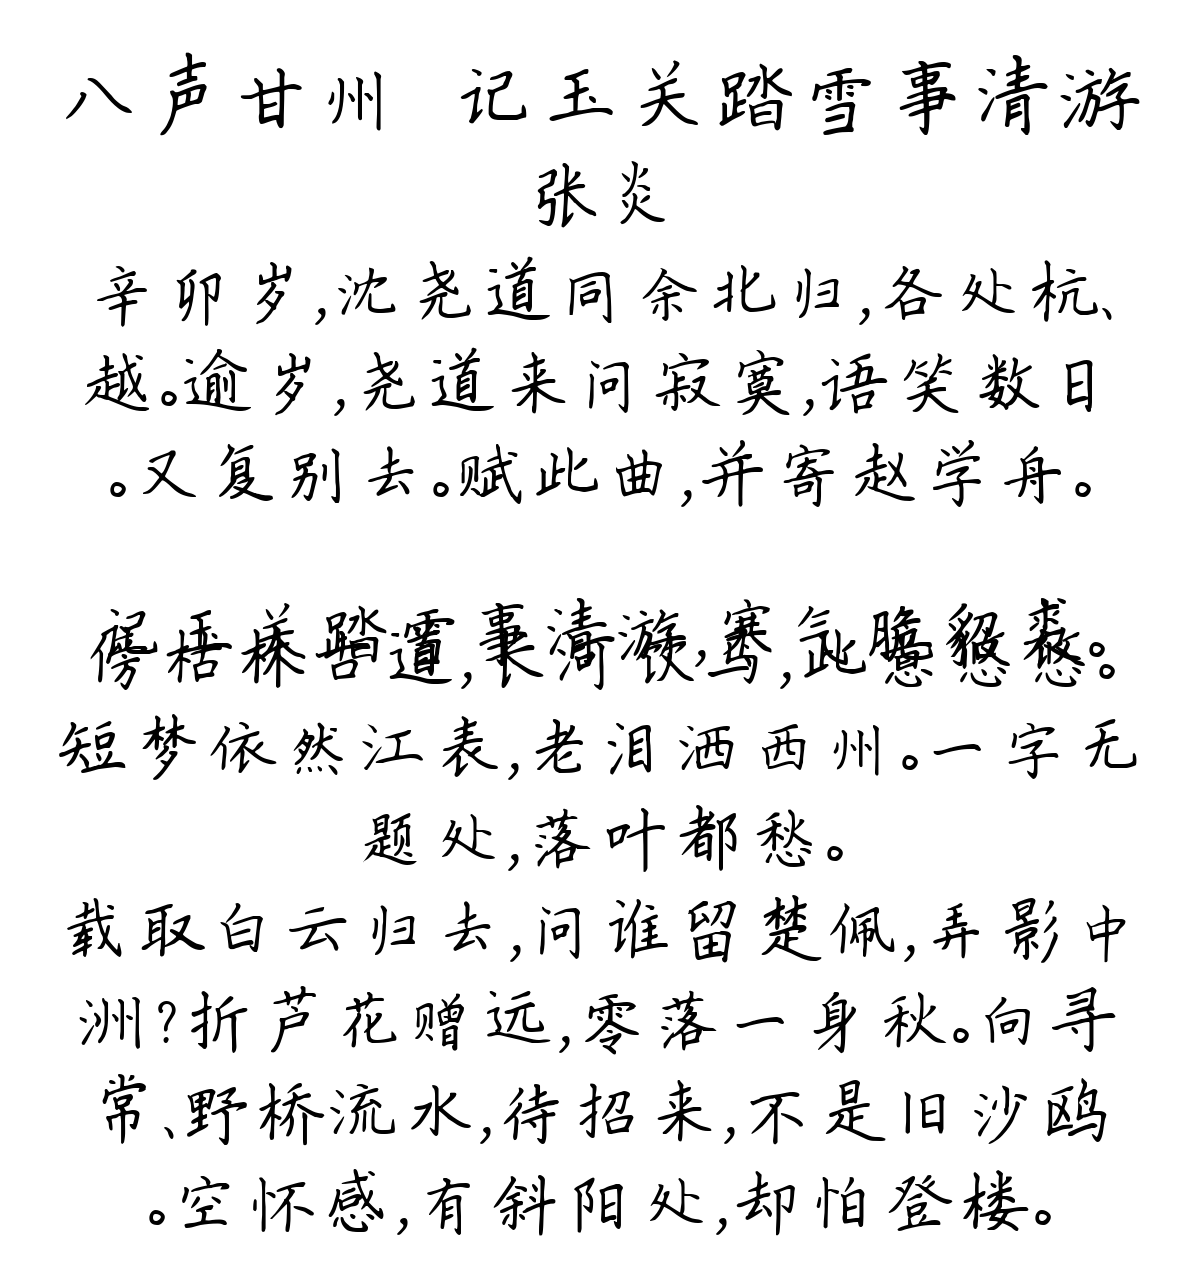 八声甘州 记玉关踏雪事清游
张炎
辛卯岁,沈尧道同余北归,各处杭、
越。逾岁,尧道来问寂寞,语笑数日
。又复别去。赋此曲,并寄赵学舟。
记玉关踏雪事清游,寒气脆貂裘。
傍枯林古道,长河饮马,此意悠悠。
短梦依然江表,老泪洒西州。一字无
题处,落叶都愁。
载取白云归去,问谁留楚佩,弄影中
洲?折芦花赠远,零落一身秋。向寻
常、野桥流水,待招来,不是旧沙鸥
。空怀感,有斜阳处,却怕登楼。